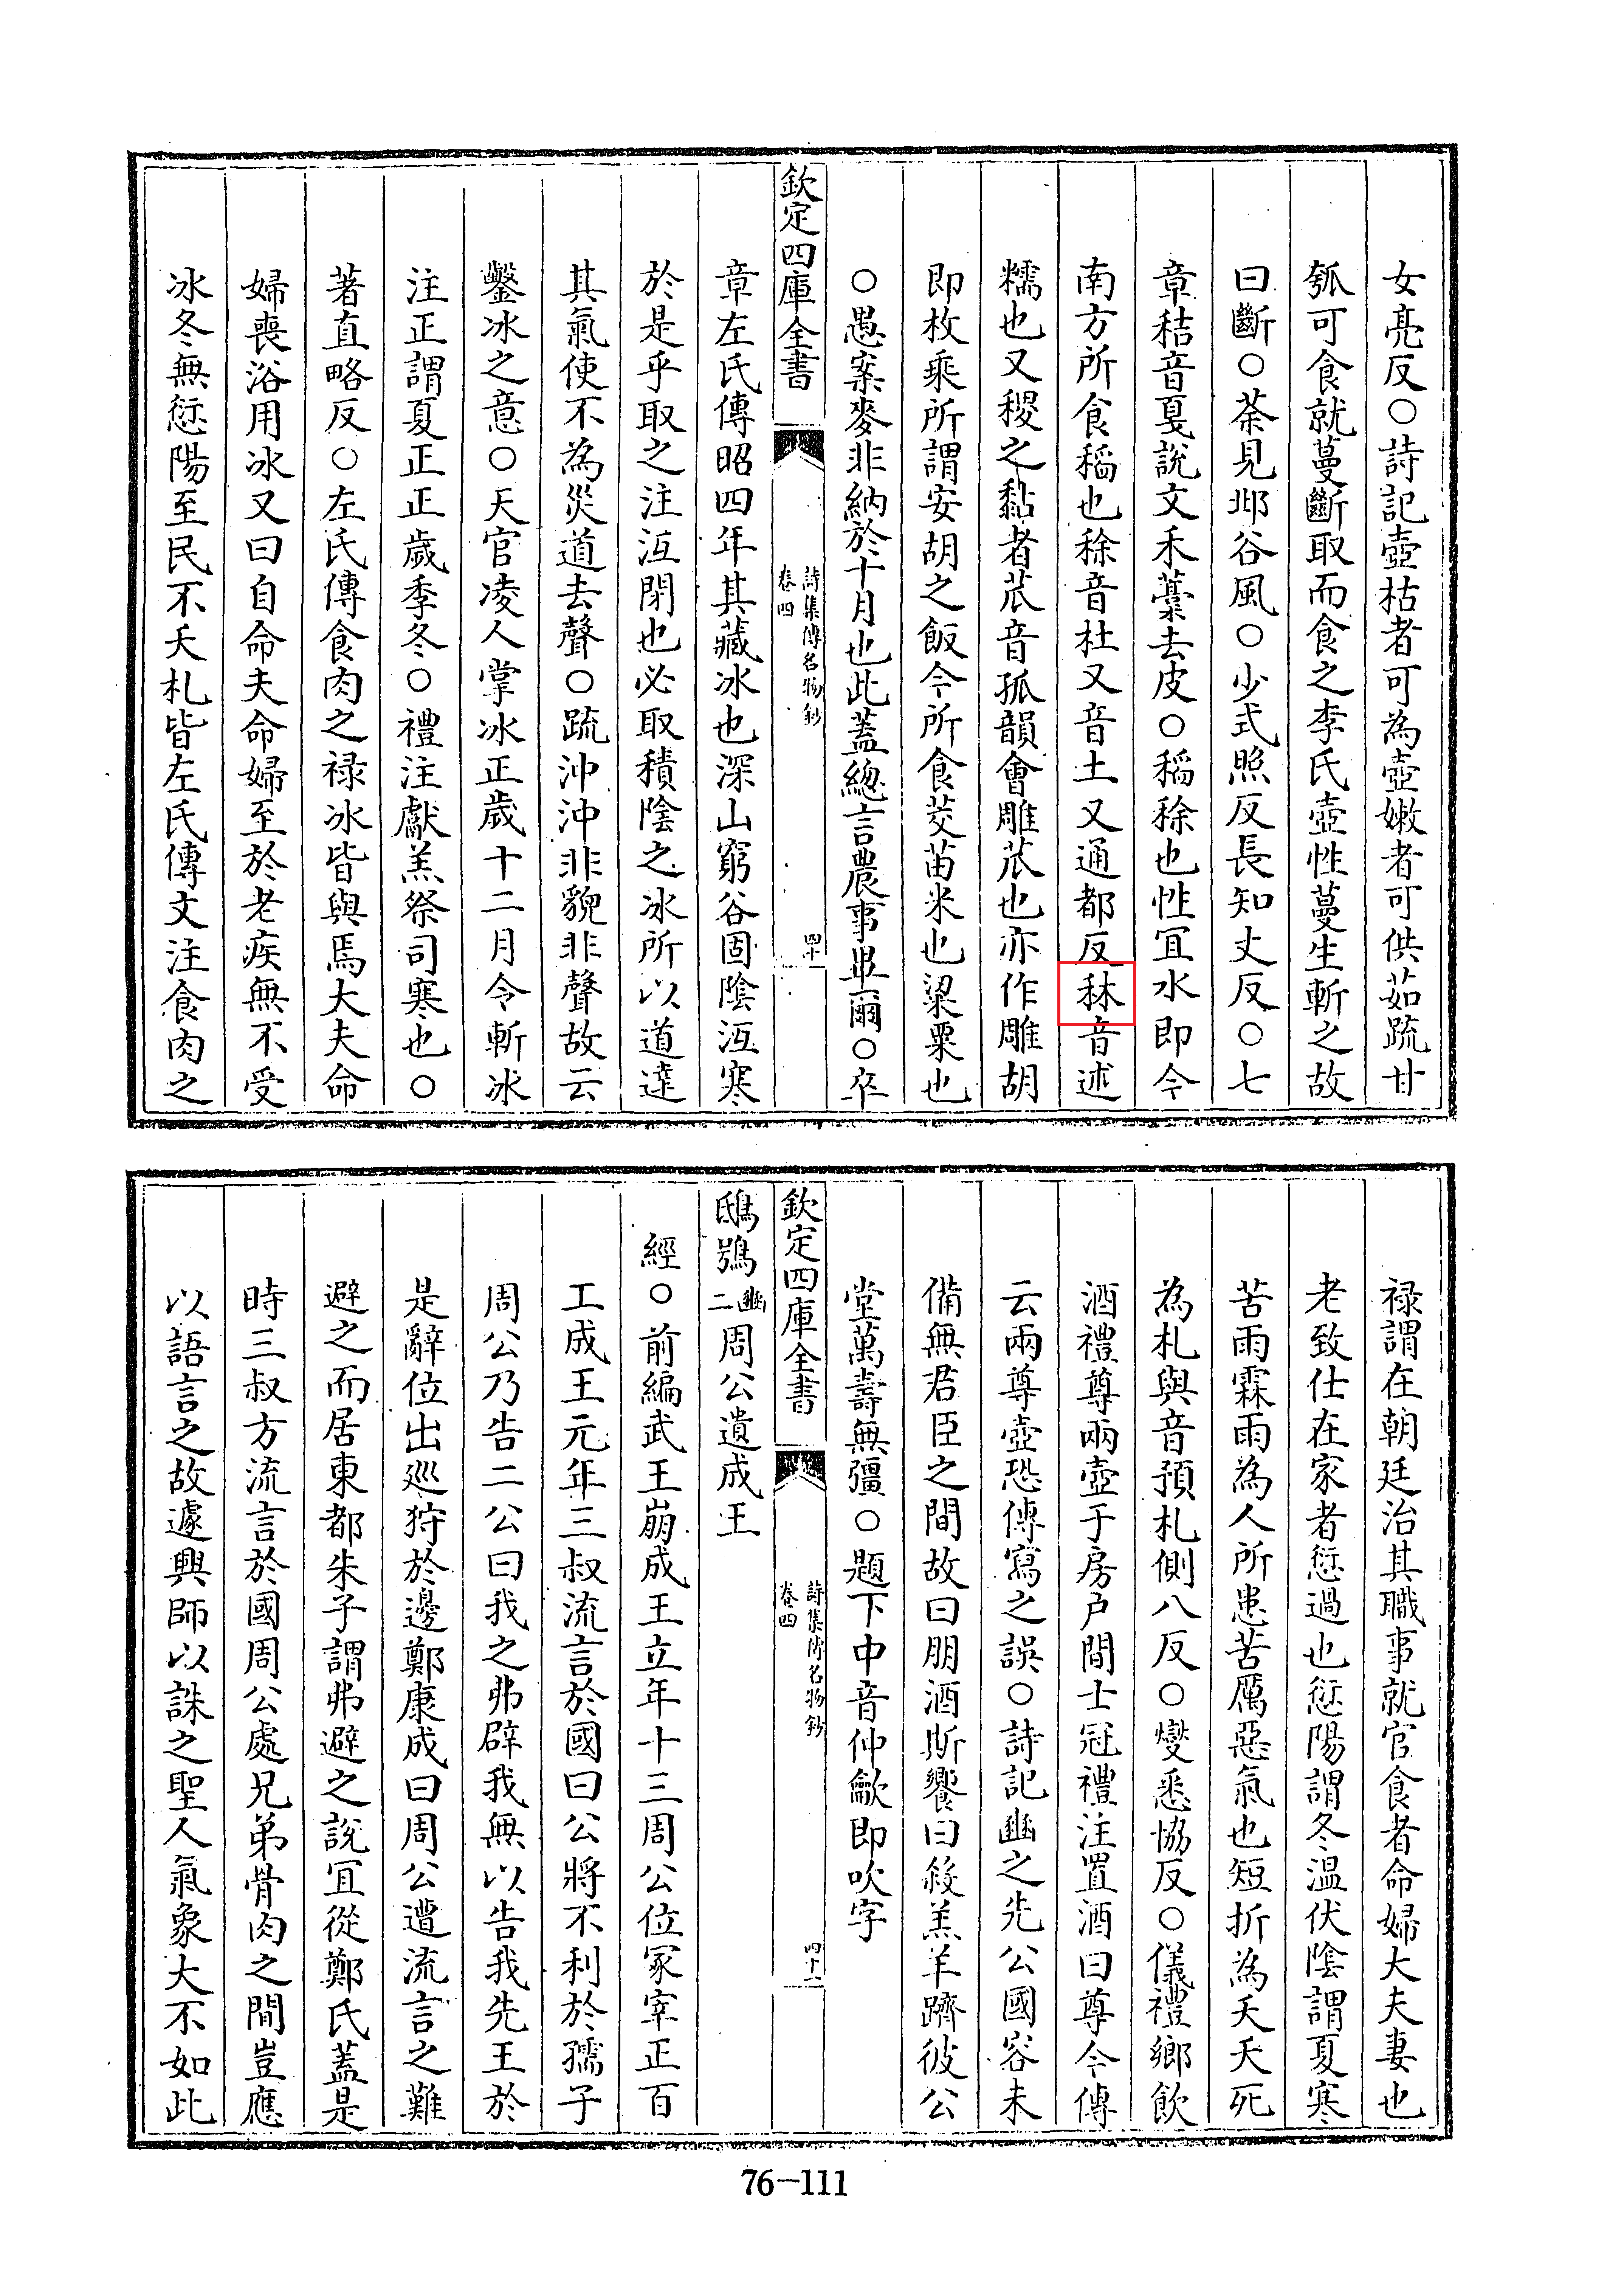 女亮反○詩記壺枯者可為壺嫩者可供茹䟽甘
瓠可食就蔓斷取而食之李氏壺性蔓生斬之故
曰斷○荼見邶谷風○少式照反長知丈反○七
章秸音戛說文禾藁去皮○稻稌也性宜水即今
南方所食稻也稌音杜又音土又通都反秫音述
糯也又稷之黏者苽音孤韻會雕苽也亦作雕胡
即枚乘所謂安胡之飯今所食茭苗米也粱粟也
○愚案麥非納於十月也此蓋總言農事畢爾○卒
欽定四庫全書
詩集傳名物鈔
卷四
四十
章左氏傳昭四年其藏冰也深山窮谷固陰沍寒
於是乎取之注沍閉也必取積陰之冰所以道達
其氣使不為災道去聲○䟽沖沖非貌非聲故云
鑿冰之意○天官凌人掌冰正歲十二月令斬冰
注正謂夏正正歲季冬○禮注獻羔祭司寒也○
著直略反○左氏傳食肉之祿冰皆與焉大夫命
婦喪浴用冰又曰自命夫命婦至於老疾無不受
冰冬無愆陽至民不夭札皆左氏傳文注食肉之
祿謂在朝廷治其職事就官食者命婦大夫妻也
老致仕在家者愆過也愆陽謂冬溫伏陰謂夏寒
苦雨霖雨為人所患苦厲惡氣也短折為夭夭死
為札與音預札側八反○燮悉協反○儀禮鄉飲
酒禮尊兩壺于房戶間士冠禮注置酒曰尊今傳
云兩尊壺恐傳寫之誤○詩記豳之先公國容未
備無君臣之間故曰朋酒斯饗曰殺羔羊躋彼公
堂萬壽無彊○題下中音仲龡即吹字
欽定四庫全書
詩集傳名物鈔
卷四
四十一
鴟鴞豳二周公遺成王
經○前編武王崩成王立年十三周公位冢宰正百
工成王元年三叔流言於國曰公將不利於孺子
周公乃告二公曰我之弗辟我無以告我先王於
是辭位出巡狩於邊鄭康成曰周公遭流言之難
避之而居東都朱子謂弗避之說宜從鄭氏蓋是
時三叔方流言於國周公處兄弟骨肉之間豈應
以語言之故遽興師以誅之聖人氣象大不如此
76-111